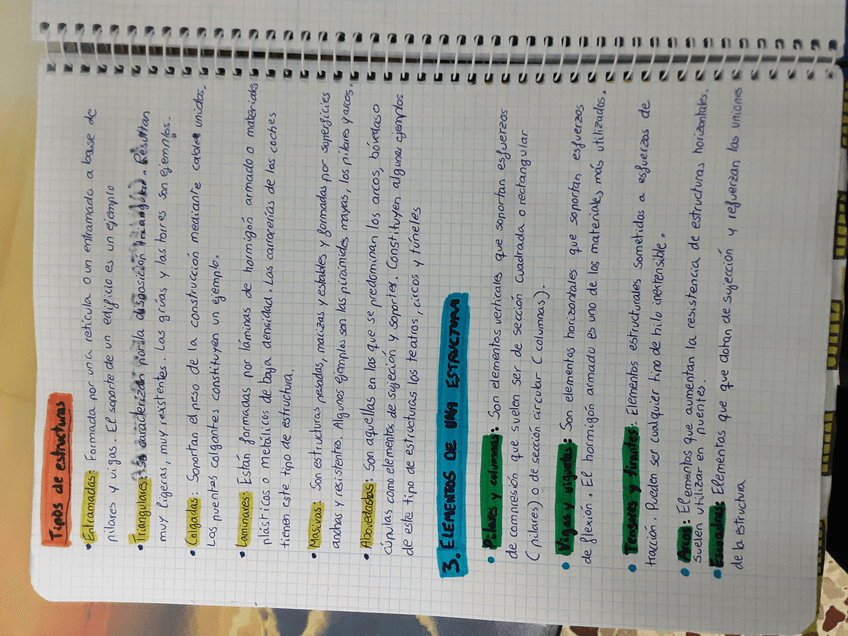 Tipos de estructuras
• Entramadas: Formada por una retícula o un entramado a base de
pilares y vigas. El soporte de un edificio es un ejemplo
• Triangulares: Se caracterizan por la disposición triangular. Resultan
muy ligeras, muy resistentes. Las grúas y las torres son ejemplos.
• Colgadas: Soportan el peso de la construcción mediante cables unidos.
Los puentes colgantes constituyen un ejemplo.
• Laminares: Están formadas por láminas de hormigón armado o materiales
plásticos o metálicos de baja densidad. Las carrocerías de los coches
tienen este tipo de estructura.
• Masivas: Son estructuras pesadas, macizas y estables y formadas por superficies
anchas y resistentes. Algunos ejemplos son las pirámides mayas, los pilares y arcos.
• Abovedadas: Son aquellas en las que se predominan los arcos, bóvedas o
cúpulas como elementos de sujeción y soportes. Constituyen algunos ejemplos
de este tipo de estructuras los teatros, circos y túneles
3. ELEMENTOS DE UNA ESTRUCTURA
• Pilares y columnas: Son elementos verticales que soportan esfuerzos
de compresión que suelen ser de sección cuadrada o rectangular
(pilares) o de sección circular (columnas).
• Vigas y viguetas: Son elementos horizontales que soportan esfuerzos
de flexión. El hormigón armado es uno de los materiales más utilizados.
• Tensores y tirantes: Elementos estructurales sometidos a esfuerzos de
tracción. Pueden ser cualquier tipo de hilo inextensible.
• Arcos: Elementos que aumentan la resistencia de estructuras horizontales.
suelen utilizar en puentes.
• Escuadras: Elementos que que dotan de sujección y refuerzan las uniones
de la estructura